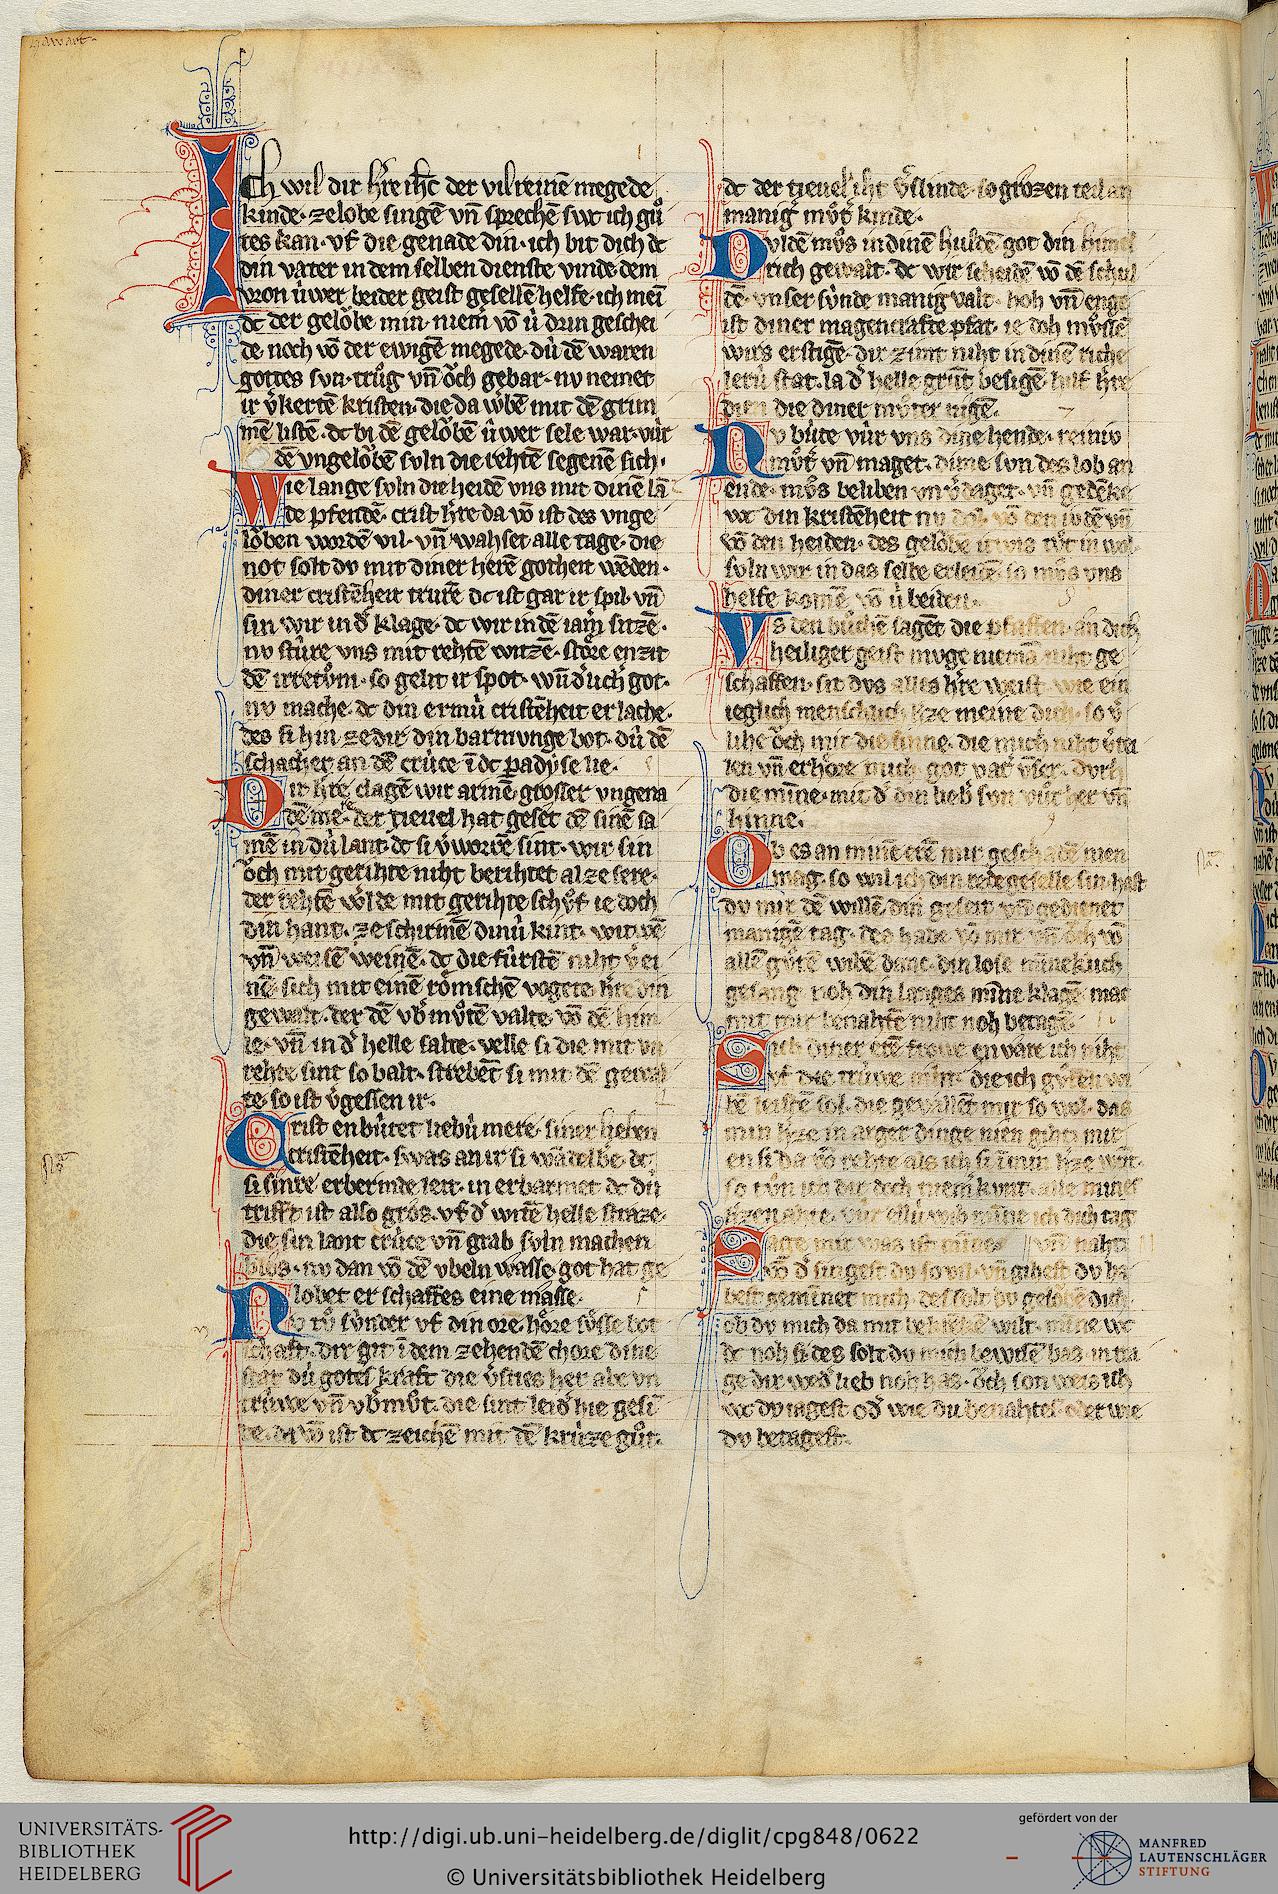 Ich wil dir h're ih'c der vil reinē megede
kinde. ze lobe singē vn̄ sprechē swc ich gůͦ
tes kan. vf die genade din. ich bit dich dc
din vater in dem selben dienste vinde. dem
vron ûwer beider geist gesellē helfe. ich mei
dc der gelǒbe min. niem' vō û drin geschei
de. noch vō der ewigē megede. dû dē waren
gottes svn. trůg vn̄ ǒch gebar. nv nemet
ir v'kertē kristen. die da w'bē mit dē grim
mē listē. dc bi dē gelǒbē ûwer sele war. vûr
dē vngelǒbē svln die rehtē segenē sich.
Wie lange svln die heidē vns mit dinē lā
de pfendē. crist h're da vō ist des vnge
lǒben wordē vil. vn̄ wahset alle tage. die
not solt dv mit diner herē gotheit wēden.
diner cristēheit trurē dc ist gar ir spil. vn̄
sin wir in d' klage. dc wir in dē iam' sitzē.
nv stûre vns mit rehtē witzē. stǒre enzit
dē irretůͦm. so gelit ir spot.
nv mache. dc din ermû cristēheit erlache.
des si hin ze dir din barmvnge bot. dû dē
schacher an dē crûce ī dc padyse lie.
Dir h're clagē wir armē grosser vngena
dē me. der tieuel hat geset dē sinē sa
mē in dû lant. dc si v'worrē sint. wir sin
ǒch mit gerihte niht berihtet al ze sere.
der rehtē w'lde mit gerihte schůf ie doch
din hant. ze schirmē dinû kint. witwē
vn̄ weisē weinē. dc die fûrstē niht v'ei
nē. sich mit einē rǒmschen vogete. h're din
gewalt. der dē vb'můtē valte. vō dē him
le. vn̄ in d' helle salte. velle si die mit vn
rehte sint so balt. strebēt si mit dē gewal
te. so ist v'gessen ir.
Crist enbûtet liebû mere. siner lieben
cristēheit. swas an ir si wādelbe. dc
si sinre erberinde leit. in erbarmet dc dû
trifft ist also gros. vf d' witē helle straze.
die sin lant crûce vn̄ grab svln machen
blos. nv dan vō dē vbeln wasse. got hat ge
lobet er schaffes eine masse.
Nv tů sûnder vf din orē. hǒre sǒsse bot
schaft. dir git ī dem zehendē chore dine
stat dû gotes kraft die v'sties her abe vn
trûwe vn̄ vb'můt. die sint leid' hie gesi
de. da vō ist dc zeichē mit dē krûze gůt.
dc der tieuel iht v'slinde. so grozen teil an
manig' můt' kinde.
Dvldē můs in dinē huldē got din himel
rich gewalt. dc wir scheidē vō dē schul
dē. vnser sûnde manigvalt. hoh vn̄ enge
ist diner magencrafte pfat. ie doh můssē
wirs erstigē. dir zimt niht in dinē riche
lerû stat. la d' helle grūt besigē. hilf h're
dien die diner můter nigē.
Nv bûte vûr vns dine hende. reiniv
můt' vn̄ maget. dime svn des lob an
ende. můs beliben vnv'daget. vn̄ gedēke
wc din kristēheit nv dol. vō den ivdē vn̄
vō den heiden. des gelǒbē itwis tůt in wol.
svln wir in das selbe erleidē. so můs vns
helfe komē vō û beiden.
Vs den bůchē sagēt die pfaffen. an dich
heiliger geist mvge niemā niht ge
schaffen. sit dvs alles h're weist. wie ein
ieglich menschlich h'ze meine dich. so v'
lihe ǒch mir die sinne. die mich niht v'tei
len vn̄ erhǒre mich. got vat' vn̄ser. dvrh
die mīne. mit d' din lieb' svn vûr her vn̄
hinne.
Ob es an minē erē mir geschadē nien
mag. so wil ich din rehte geselle sin. hast
dv mir dē willē din geseit vn̄ gedienet
manigē tag. des habe vō mir vn̄ ǒch vō
allē gůtē wibē danc. din lose mīneklich
gesang noh din langes mīne klagē. mac
mit mir benahtē niht noh betagē.
Sich diner erē frowe en vare ich niht
vf die trûwe min. die ich gůtē wi
bē leistē sol. die gevallēt mir so wol. das
min h'ze in arger dinge nien giht. mit
en si da vō rehte als ich si ī min h'ze
so tůn ich dir doch kunt. alle mines
h'zen ahte. vûr ellû wib mīne ich dich tag
vn̄ naht.
Sage mir was ist
vō d' singest dv so vil. vn̄ gihest dv ha
best gemīnet mich. des solt dv gelǒbē dich.
ob dv mich da mit beliebē wilt. mīne wc
dc noh si des solt dv mich bewisē bas. in tra
ge dir wed' lieb noh has. ǒch son weis ich
wc dv iagest od' wie du benahtes oder wie
dv betagest.
UNIVERSITÄTS-
BIBLIOTHEK
HEIDELBERG
http://digi.ub.uni-heidelberg.de/diglit/cpg848/0622
© Universitätsbibliothek Heidelberg
gefördert von der
MANFRED
LAUTENSCHLÄGER
STIFTUNG